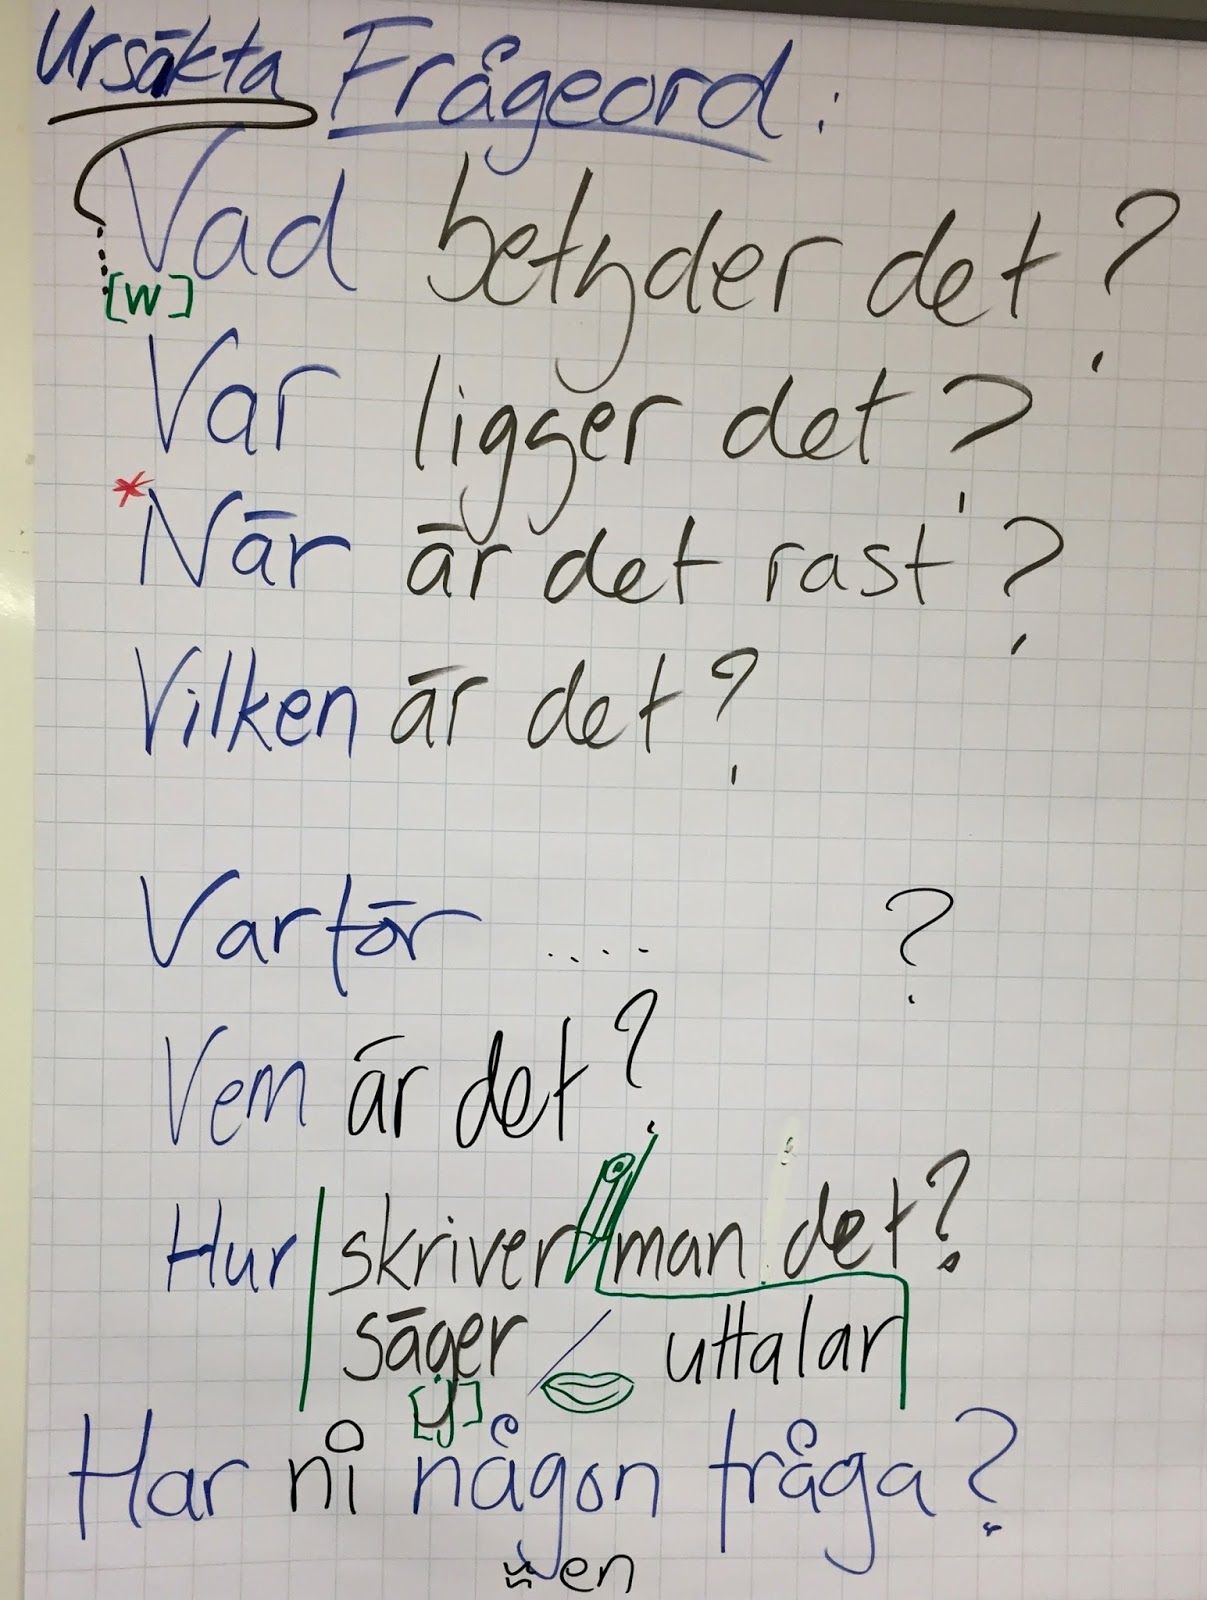 Ursäkta Frågeord:
Vad betyder det?
[w]
Var ligger det?
*När är det rast?
Vilken är det?
Varför .... ?
Vem är det?
Hur skriver man det?
säger / uttalar
[j]
Har ni någon fråga?
≈ en